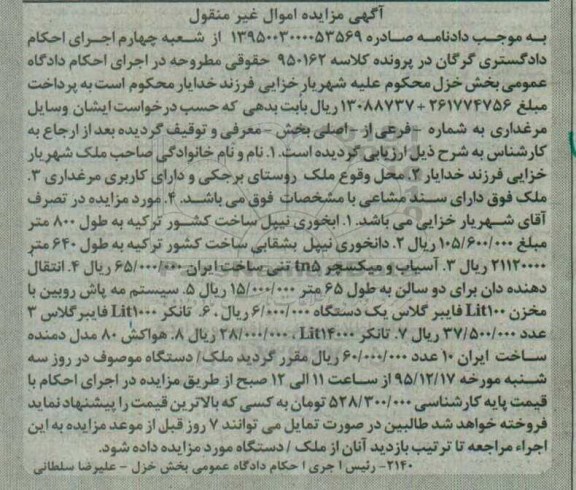 آگهی مزایده اموال غیر منقول
به موجب دادنامه صادره ۱۳۹۵۰۰۳۰۰۰۰۵۳۵۶۹ از شعبه چهارم اجرای احکام
دادگستری گرگان در پرونده کلاسه ۹۵۰۱۶۲ حقوقی مطروحه در اجرای احکام دادگاه
عمومی بخش خزل محکوم علیه شهریار خزایی فرزند خدایار محکوم است به پرداخت
مبلغ ۲۶۱۷۷۴۷۵۶ + ۱۳۰۸۸۷۳۷ ریال بابت بدهی که حسب درخواست ایشان وسایل
مرغداری به شماره - فرعی از - اصلی بخش - معرفی و توقیف گردیده بعد از ارجاع به
کارشناس به شرح ذیل ارزیابی گردیده است. ۱. نام و نام خانوادگی صاحب ملک شهریار
خزایی فرزند خدایار ۲. محل وقوع ملک روستای برجکی و دارای کاربری مرغداری ۳.
ملک فوق دارای سند مشاعی با مشخصات فوق می باشد. ۴. مورد مزایده در تصرف
آقای شهریار خزایی می باشد. ۱. ابخوری نیپل ساخت کشور ترکیه به طول ۸۰۰ متر
مبلغ ۱۰۵/۶۰۰/۰۰۰ ریال ۲. دانخوری نیپل بشقابی ساخت کشور ترکیه به طول ۶۴۰ متر
۲۱۱۲۰۰۰۰ ریال ۳. آسیاب و میکسچر tn۵ تنی ساخت ایران ۶۵/۰۰۰/۰۰۰ ریال ۴. انتقال
دهنده دان برای دو سالن به طول ۶۵ متر ۱۵/۰۰۰/۰۰۰ ریال ۵. سیستم مه پاش روبین با
مخزن Lit۱۰۰ فایبر گلاس یک دستگاه ۶/۰۰۰/۰۰۰ ریال .۶. تانکر Lit۱۰۰۰ فایبرگلاس ۳
عدد ۳۷/۵۰۰/۰۰۰ ریال ۷. تانکر Lit۱۴۰۰۰ ، ۲۸/۰۰۰/۰۰۰ ریال ۸. هواکش ۸۰ مدل دمنده
ساخت ایران ۱۰ عدد ۶۰/۰۰۰/۰۰۰ ریال مقرر گردید ملک/ دستگاه موصوف در روز سه
شنبه مورخه ۹۵/۱۲/۱۷ از ساعت ۱۱ الی ۱۲ صبح از طریق مزایده در اجرای احکام با
قیمت پایه کارشناسی ۵۲۸/۳۰۰/۰۰۰ تومان به کسی که بالاترین قیمت را پیشنهاد نماید
فروخته خواهد شد طالبین در صورت تمایل می توانند ۷ روز قبل از موعد مزایده به این
اجراء مراجعه تا ترتیب بازدید آنان از ملک / دستگاه مورد مزایده داده شود.
۲۱۴۰- رئیس اجرای احکام دادگاه عمومی بخش خزل - علیرضا سلطانی